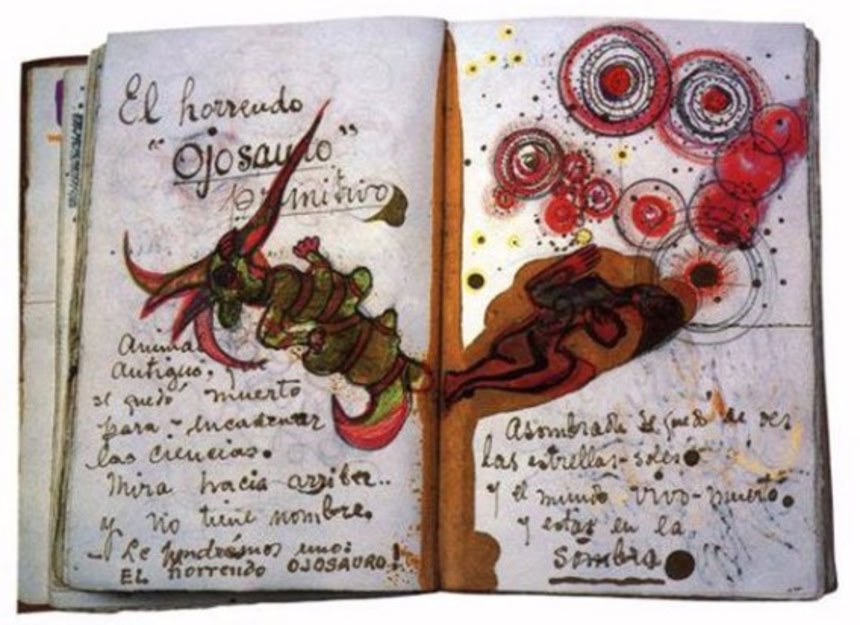 El horrendo
"Ojosauro"
primitivo
Animal
Antiguo, que
se quedó muerto
para encadenar
las ciencias.
Mira hacia arriba..
y no tiene nombre.
- Le pondremos uno:
EL horrendo OJOSAURO!
Asombrada se quedó de ver
las estrellas-soles
y el mundo vivo-muerto
y estar en la
sombra